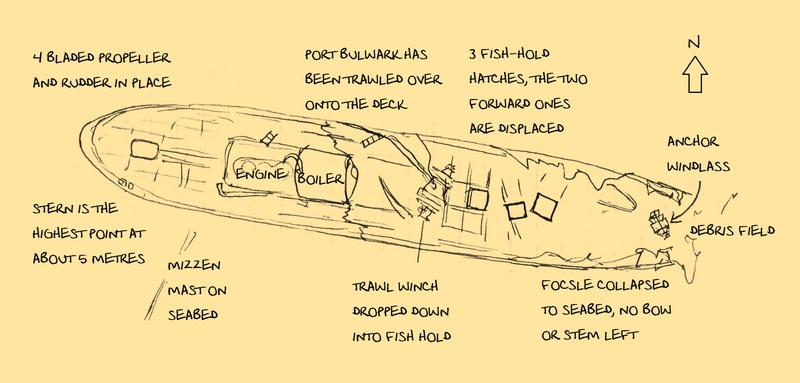 4 BLADED PROPELLER
AND RUDDER IN PLACE
PORT BULWARK HAS
BEEN TRAWLED OVER
ONTO THE DECK
3 FISH-HOLD
HATCHES, THE TWO
FORWARD ONES
ARE DISPLACED
N
ANCHOR
WINDLASS
ENGINE
BOILER
STERN IS THE
HIGHEST POINT AT
ABOUT 5 METRES
DEBRIS FIELD
MIZZEN
MAST ON
SEABED
TRAWL WINCH
DROPPED DOWN
INTO FISH HOLD
FOCSLE COLLAPSED
TO SEABED, NO BOW
OR STEM LEFT